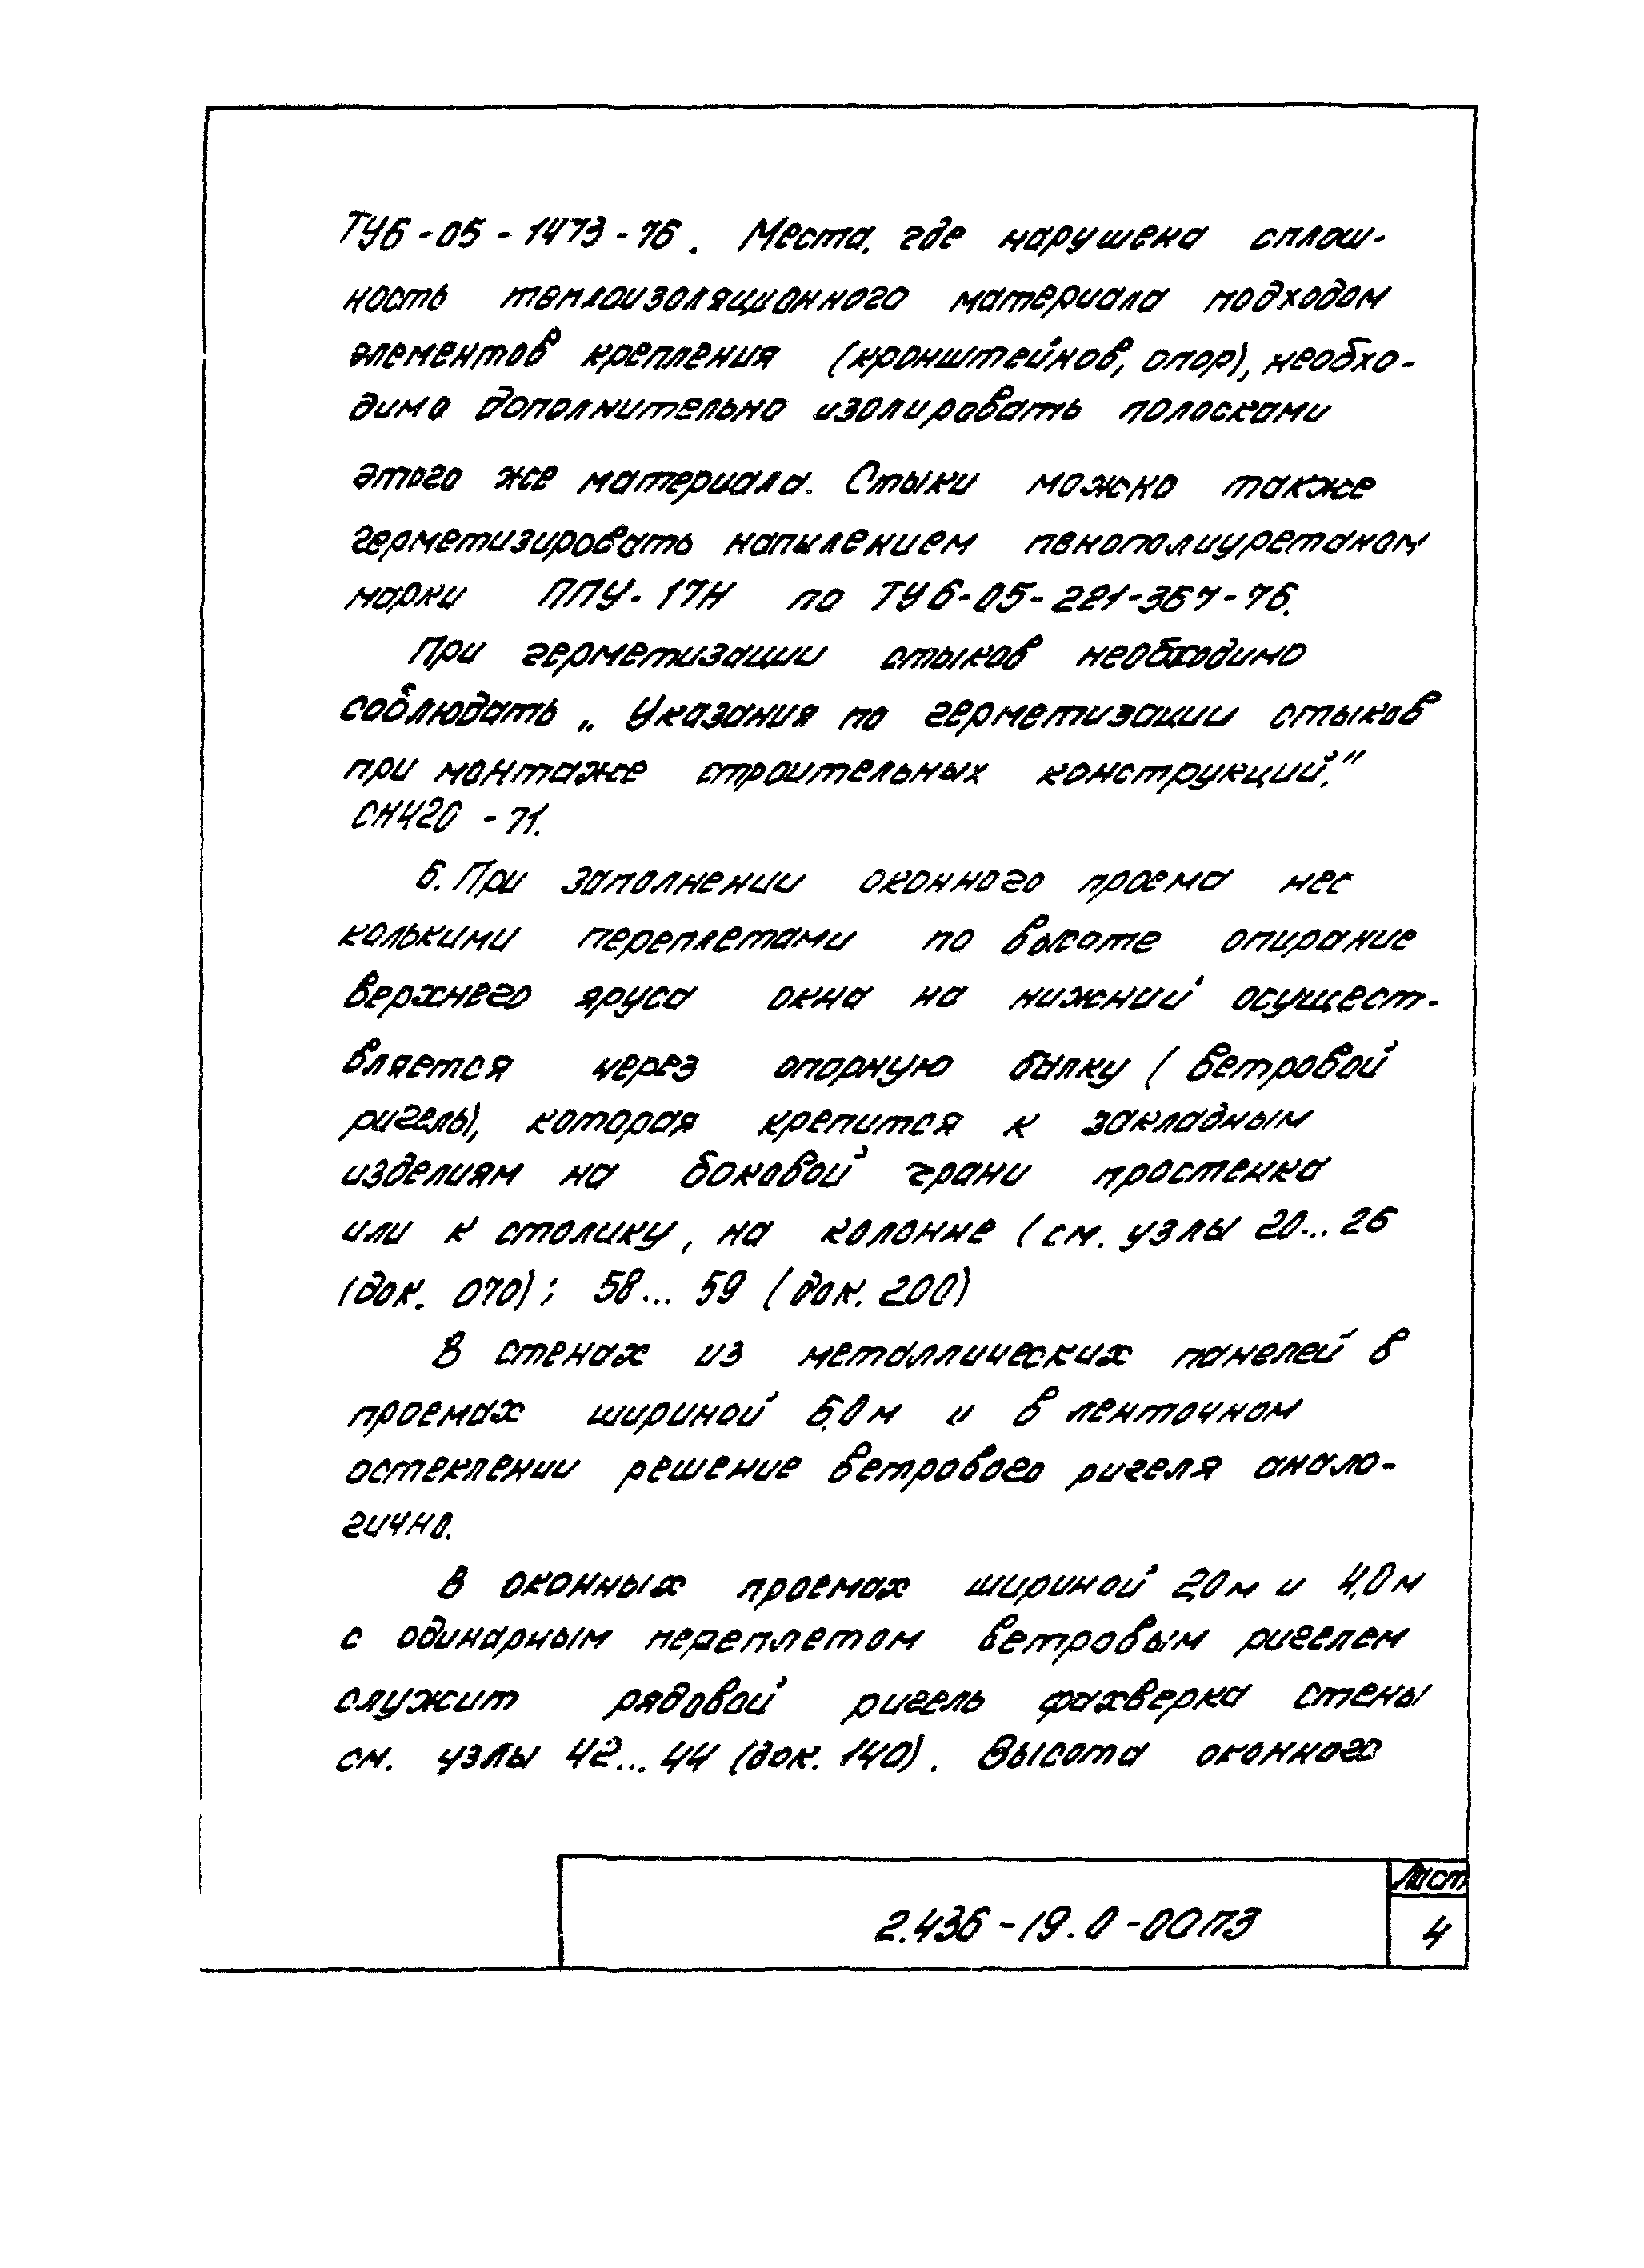 ТУ6-05-1473-76. Места, где нарушена сплош-
ность теплоизоляционного материала подходом
элементов крепления (кронштейнов, опор), необхо-
димо дополнительно изолировать полосками
этого же материала. Стыки можно также
герметизировать напылением пенополиуретаном
марки ППУ-17Н по ТУ6-05-221-367-76.
При герметизации стыков необходимо
соблюдать „Указания по герметизации стыков
при монтаже строительных конструкций."
СН420-71.
6. При заполнении оконного проема нес
колькими переплетами по высоте опирание
верхнего яруса окна на нижний осущест-
вляется через опорную балку (ветровой
ригель), которая крепится к закладным
изделиям на боковой грани простенка
или к столику, на колонне (см. узлы 20...26
(док. 070); 58...59 (док. 200)
В стенах из металлических панелей в
проемах шириной 6,0 м и в ленточном
остеклении решение ветрового ригеля анало-
гично.
В оконных проемах шириной 2,0 м и 4,0 м
с одинарным переплетом ветровым ригелем
служит рядовой ригель фахверка стены
см. узлы 42...44 (док. 140). Высота оконного
2.436-19.0-00ПЗ
Лист
4